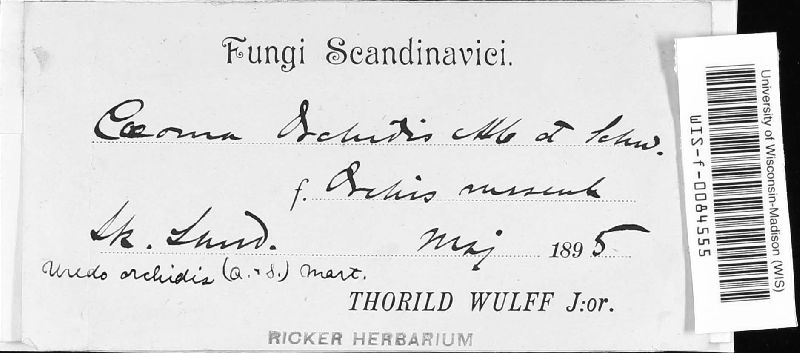 Fungi Scandinavici.
Cæoma Orchidis Alb et Schw.
f. Orchis mascula
Sk. Lund. Maj 1895
Uredo orchidis (A. & S.) Mart.
THORILD WULFF J:or.
RICKER HERBARIUM
University of Wisconsin-Madison (WIS)
WIS-f-0084555